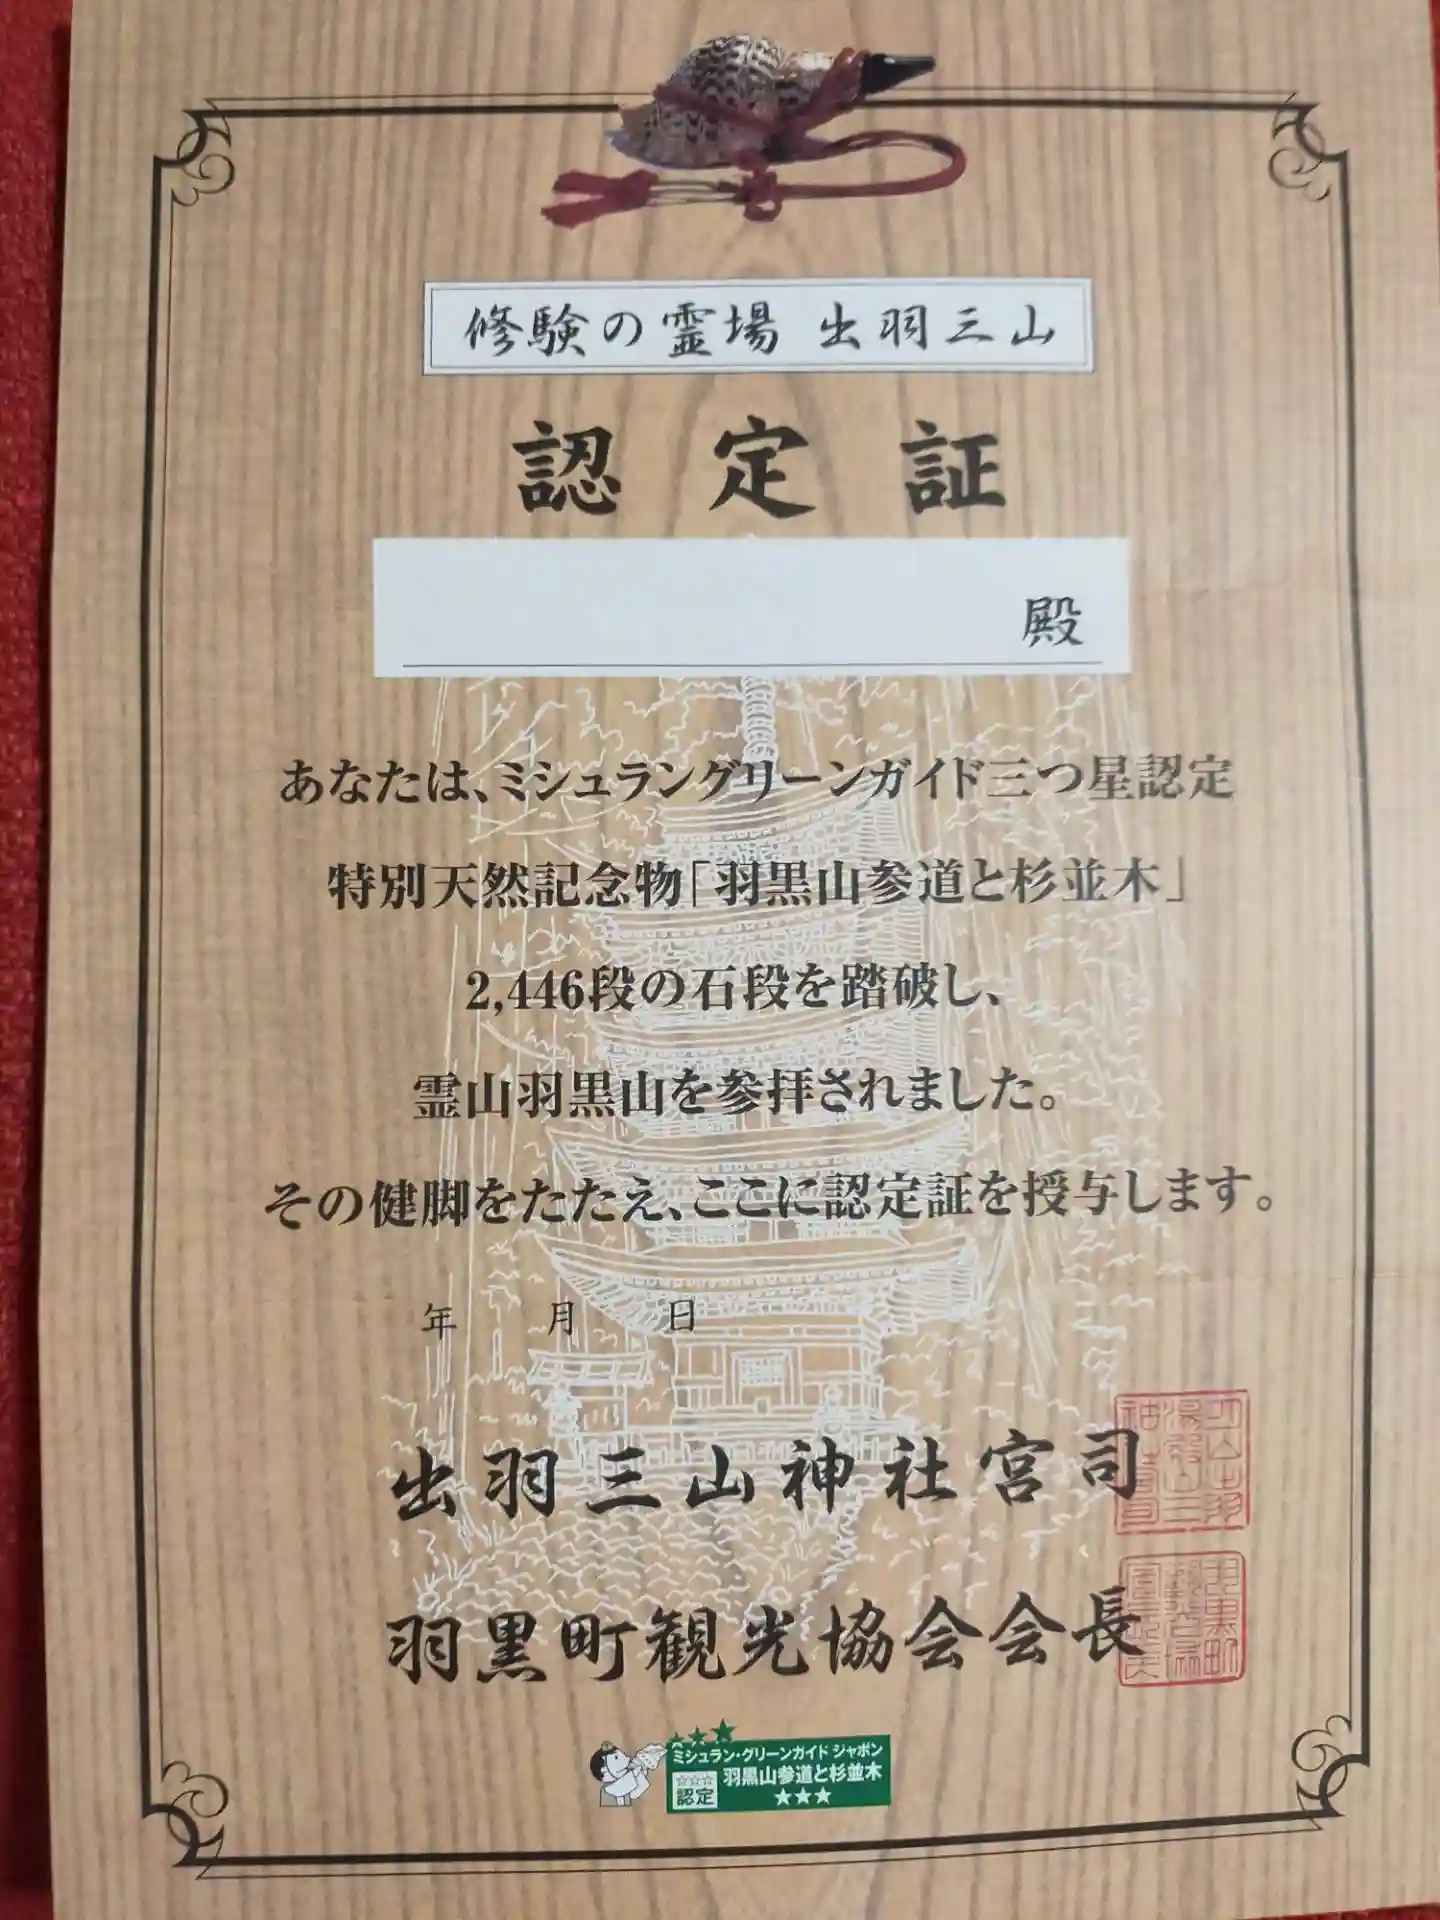 修験の霊場 出羽三山
認定証
殿
あなたは、ミシュラングリーンガイド三つ星認定
特別天然記念物「羽黒山参道と杉並木」
2,446段の石段を踏破し、
霊山羽黒山を参拝されました。
その健脚をたたえ、ここに認定証を授与します。
年 月 日
出羽三山神社宮司
羽黒町観光協会会長
ミシュラン・グリーンガイド ジャポン
認定
羽黒山参道と杉並木